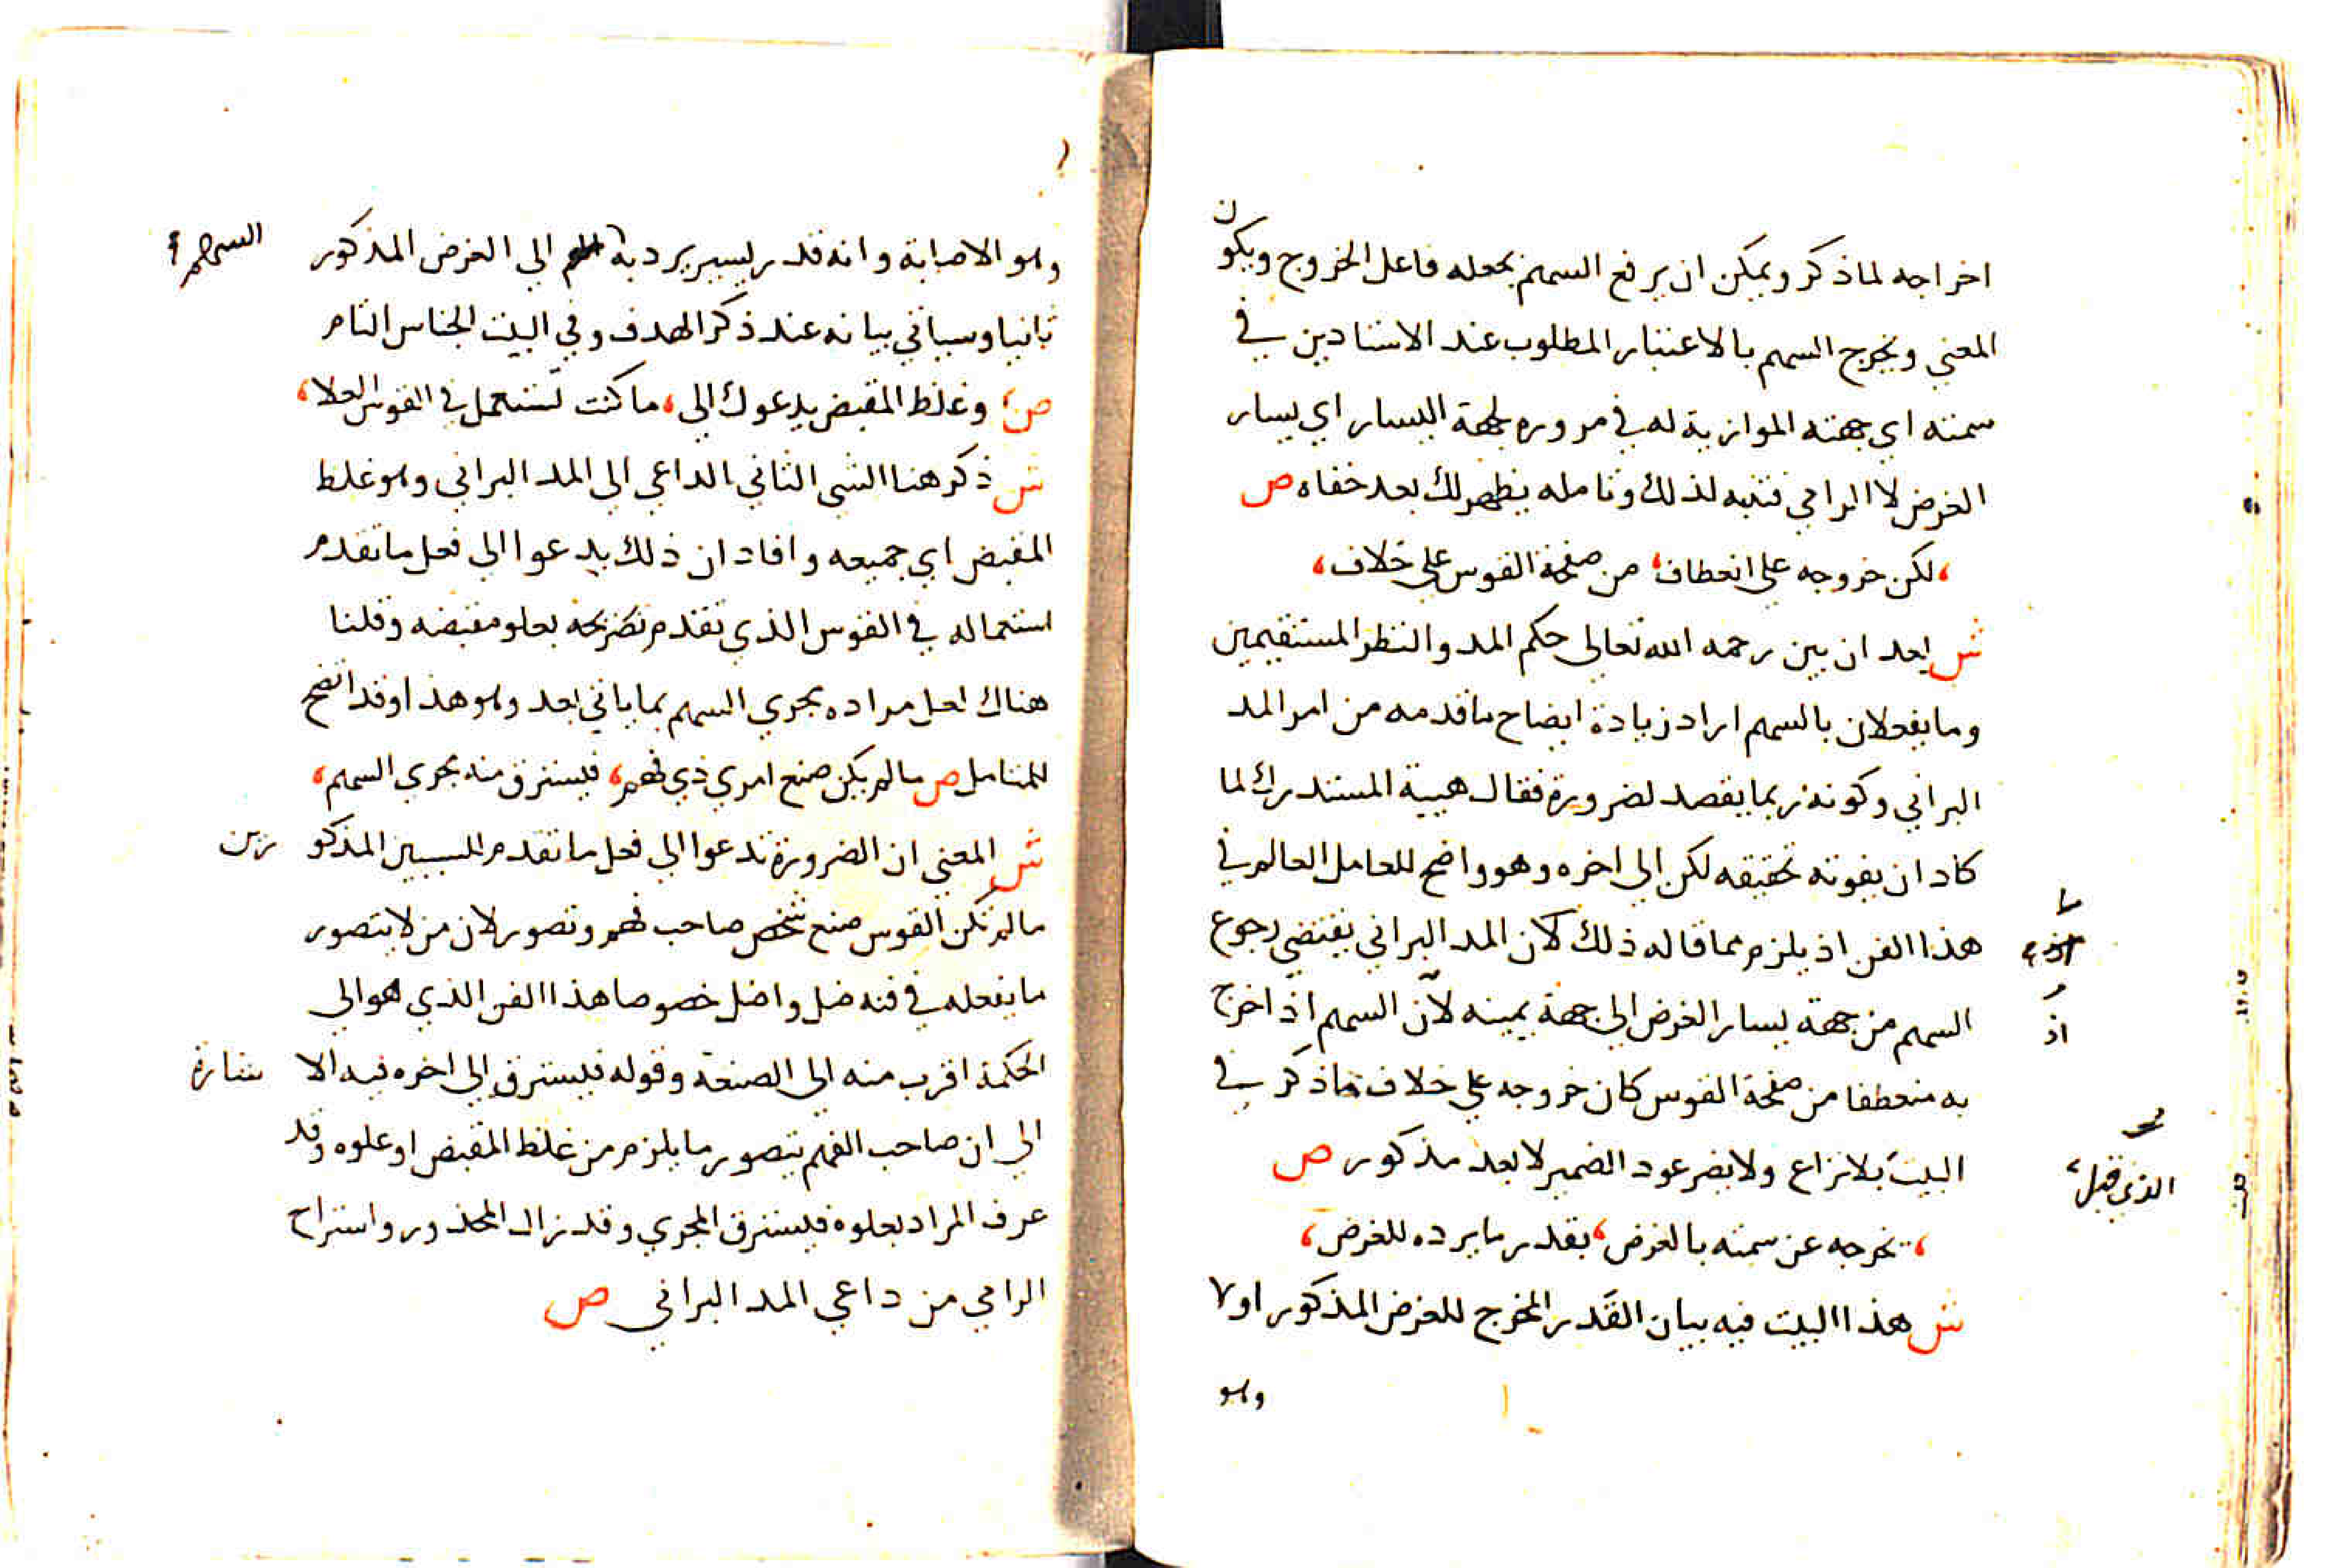 اخراجه لما ذكر ويمكن ان يرفع السهم بجعله فاعل الخروج ويكون
المعني ويخرج السهم بالاعتبار المطلوب عند الاستادين في
سمته اي جهته الموازية له في مروره لجهة اليسار اي يسار
الغرض لا الرامي فتنبه لذلك وتامله يظهر لك بعد خفاه ص
، لكن خروجه علي انعطاف ، من صفحة القوس علي خلاف ،
ش بعد ان بين رحمه الله تعالي حكم المد والنظر المستقيمين
وما يفعلان بالسهم اراد زيادة ايضاح ما قدمه من امر المد
البراني وكونه ربما يقصد لضرورة فقال هيية المستدرك لما
كاد ان يفوته تحقيقه لكن الي اخره وهو واضح للعامل العالم في
هذا الفن اذ يلزم مما قاله ذلك لان المد البراني يقتضي رجوع
السهم من جهة يسار الغرض الي جهة يمينه لان السهم اذ اخرج
به منعطفا من صفحة القوس كان خروجه علي خلاف ما ذكر في
البيت بلا نزاع ولا يضر عود الضمير لا بعد مذكور ص
الذي قبل
، تخرجه عن سمته بالغرض ، بقدر ما يرده للغرض ،
ش هذا البيت فيه بيان القدر المخرج للغرض المذكور اولا
وهو
وهو الاصابة وانه قدر يسير يرد به الي الغرض المذكور
السهم
ثانيا وسياتي بيانه عند ذكر الهدف وفي البيت الجناس التام
ص ، وغلظ المقبض يدعوك الي ، ما كنت تستعمل في القوس العلا ،
ش ذكر هنا الشي الثاني الداعي الي المد البراني وهو غلظ
المقبض اي جميعه وافاد ان ذلك يدعوا الي فعل ما تقدم
استعماله في القوس الذي تقدم تصريحه بعلو مقبضه وقلنا
هناك لعل مراده بمجري السهم بما ياتي بعد وهو هذا وقد اتضح
للمتامل ص ما لم يكن صنع امري ذي فهم ، فيسترق منه مجري السهم ،
ش المعني ان الضرورة تدعوا الي فعل ما تقدم للسببين المذكورين
ما لم تكن القوس صنع شخص صاحب فهم وتصور لان من لا يتصور
ما يفعله في فنه ضل واضل خصوصا هذا الفن الذي هو الي
الحكمة اقرب منه الي الصنعة وقوله فيسترق الي اخره فيه الاشارة
الي ان صاحب الفهم يتصور ما يلزم من غلظ المقبض او علوه وقد
عرف المراد بعلوه فيسترق المجري وقد زال المحذور واستراح
الرامي من داعي المد البراني ص